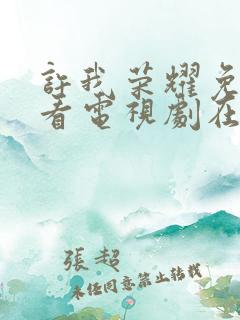 許我荣耀免
看電視劇在
張超
未任同意禁止转载